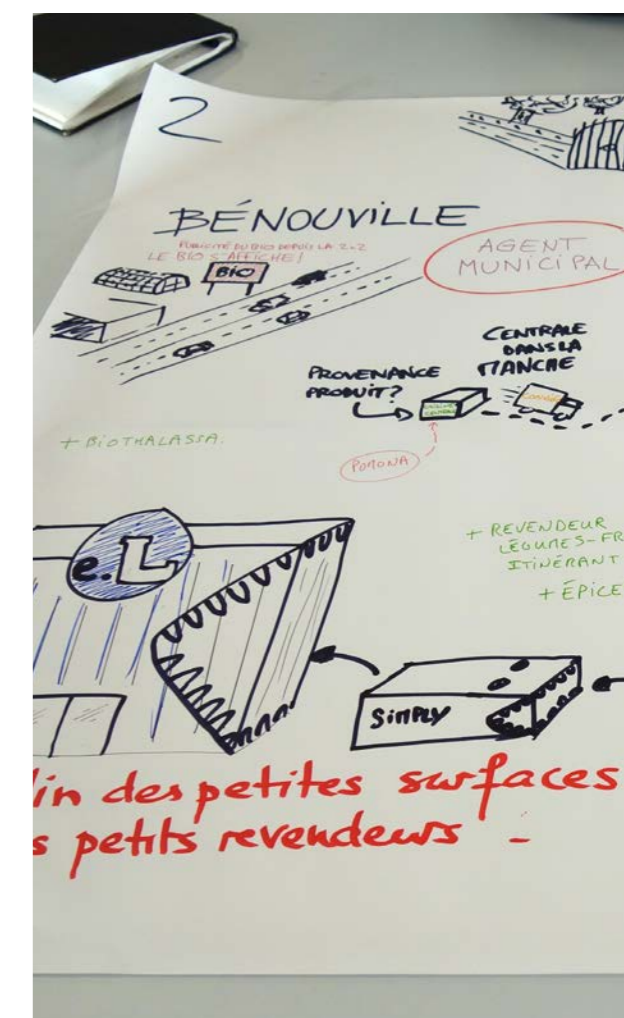 2
BÉNOUVILLE
PUBLICITÉ DU BIO DEPUIS LA 2x2
LE BIO S'AFFICHE !
BIO
AGENT
MUNICIPAL
CENTRALE
DANS LA
MANCHE
PROVENANCE
PRODUIT ?
POMONA
+ BIOTHALASSA.
+ REVENDEUR
LÉGUMES-FR
ITINÉRANT
+ ÉPICE
e.L
SIMPLY
in des petites surfaces
s petits revendeurs